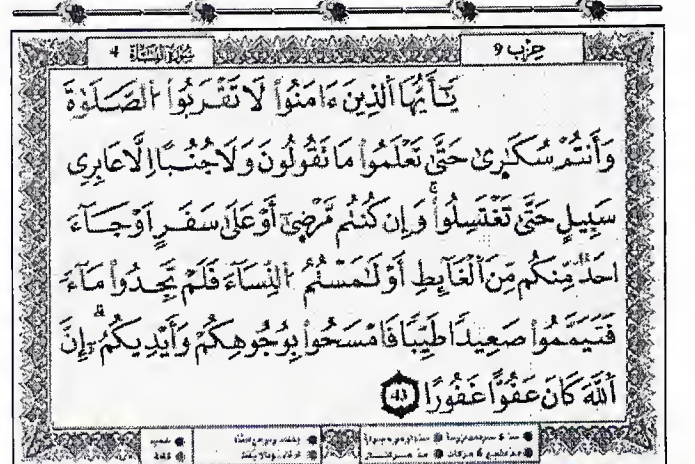 سُورَةُ النِّسَاءِ 4
حِزْب 9
يَٰٓأَيُّهَا ٱلذِينَ ءَامَنُوا۟ لَا تَقْرَبُوا۟ ٱلصَّلَوٰةَ
وَأَنتُمْ سُكَٰرِىٰ حَتَّىٰ تَعْلَمُوا۟ مَا تَقُولُونَ وَلَا جُنُبًا اِلَّا عَابِرِى
سَبِيلٍ حَتَّىٰ تَغْتَسِلُوا۟ۚ وَإِن كُنتُم مَّرْضِىٰٓ أَوْ عَلَىٰ سَفَرٍ اَوْ جَآءَ
احَدٌ مِّنكُم مِّنَ ٱلْغَآئِطِ أَوْ لَٰمَسْتُمُ ٱلنِّسَآءَ فَلَمْ تَجِدُوا۟ مَآءً
فَتَيَمَّمُوا۟ صَعِيدًا طَيِّبًا فَامْسَحُوا۟ بِوُجُوهِكُمْ وَأَيْدِيكُمُۥٓۗ إِنَّ
ٱللَّهَ كَانَ عَفُوًّا غَفُورًا 43